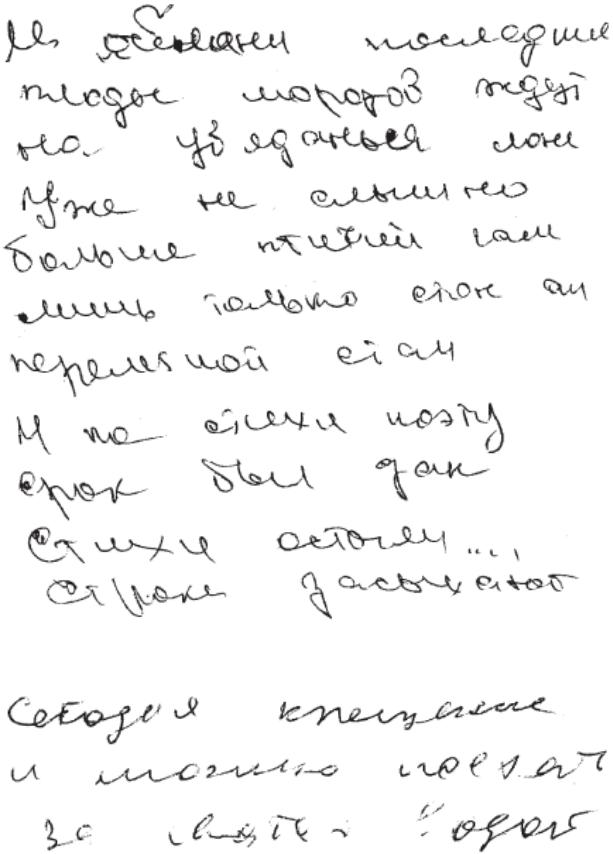 последние
плоды морозов ждут
на увяданья лоне
Уже не слышно
больше птичий гам
лишь только стон
перелетной стаи
И на стихи поэту
срок был дан
Стихи остались....
Строки засыхают
Сегодня крещение
и можно поехат
за святой водой